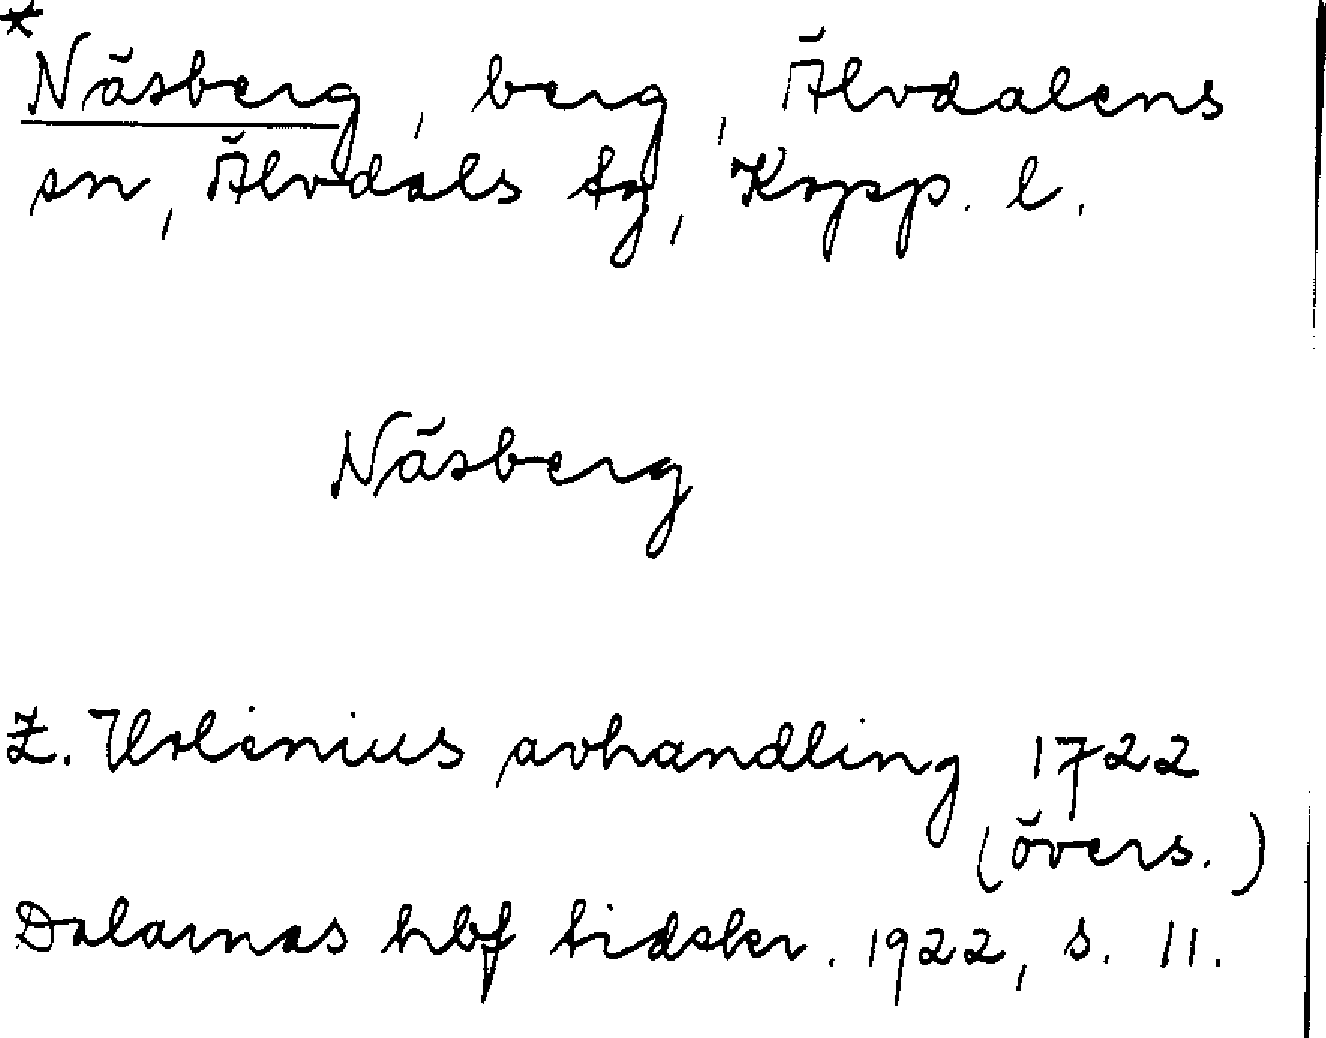 *
Näsberg, berg, Älvdalens
sn, Älvdals tg, Kopp. l.
Näsberg
Z. Holenius avhandling 1722
(övers.)
Dalarnas hbf tidskr. 1922, s. 11.